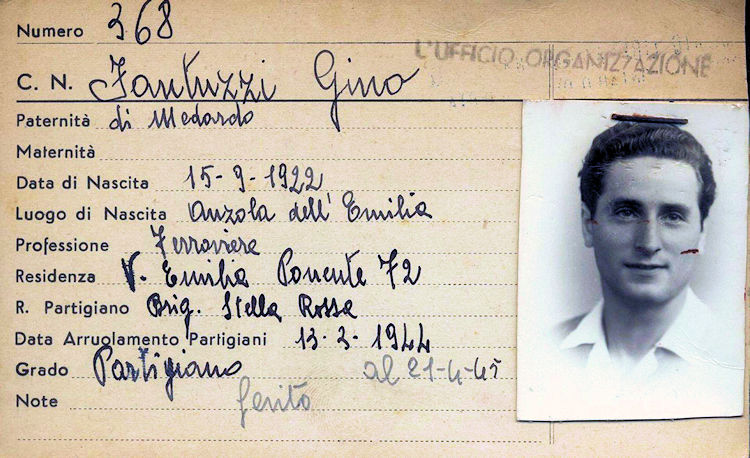 Numero 368
L'UFFICIO ORGANIZZAZIONE
C. N. Fantuzzi Gino
Paternità di Medardo
Maternità
Data di Nascita 15-9-1922
Luogo di Nascita Anzola dell'Emilia
Professione Ferroviere
Residenza V. Emilia Ponente 72
R. Partigiano Brig. Stella Rossa
Data Arruolamento Partigiani 13-2-1944
Grado Partigiano al 21-4-45
Note ferito